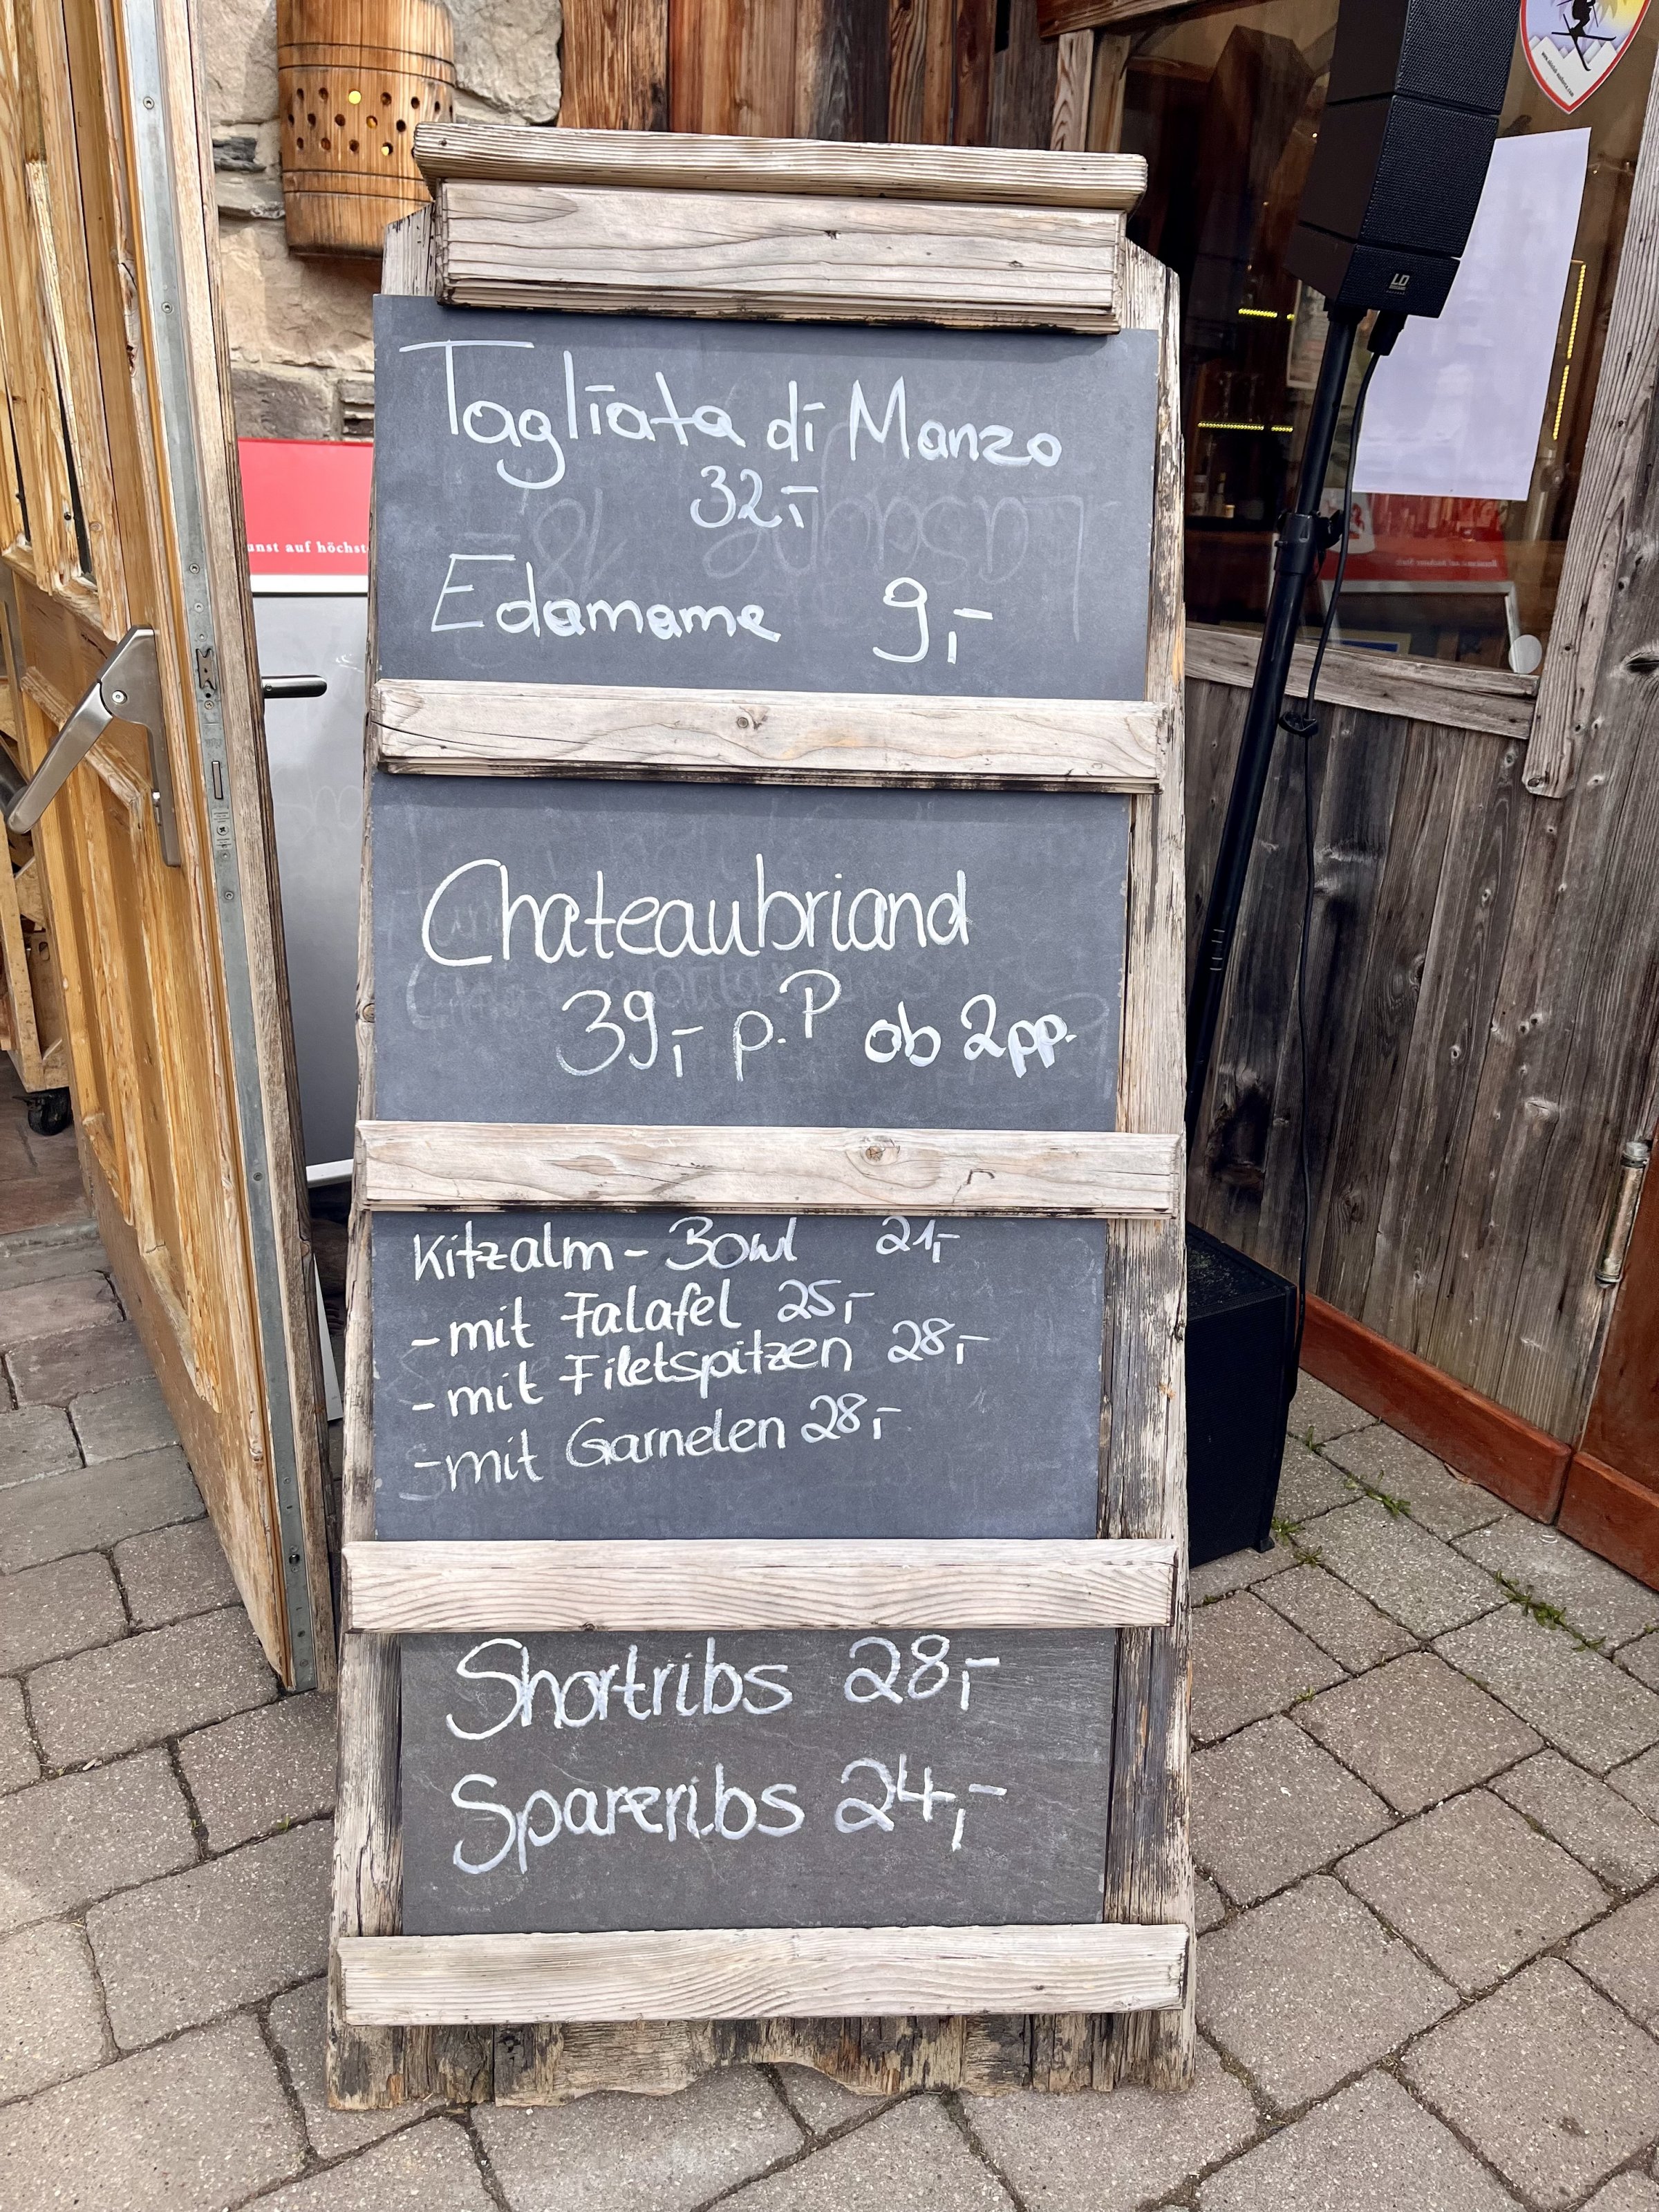 Tagliata di Manzo
32,-
Edamame 9,-
Chateaubriand
39,- p.P ab 2pp.
Kitzalm - Bowl 21,-
- mit Falafel 25,-
- mit Filetspitzen 28,-
- mit Garnelen 28,-
Shortribs 28,-
Spareribs 24,-
unst auf höchst
LD